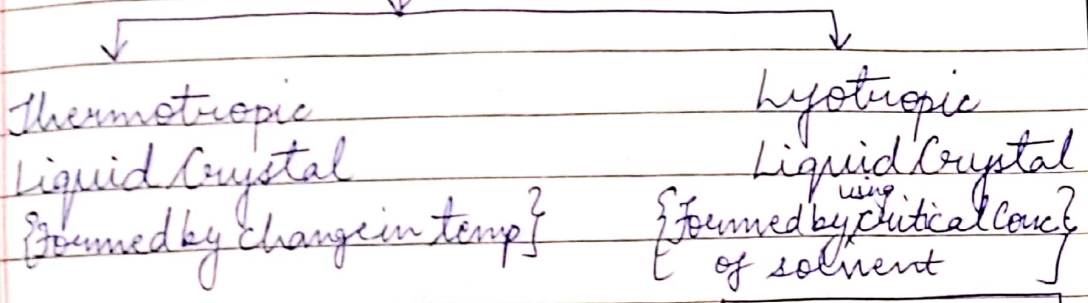 Thermotropic
Liquid Crystal
{Formed by change in temp}
Lyotropic
Liquid Crystal
using
{Formed by critical Conc}
of solvent